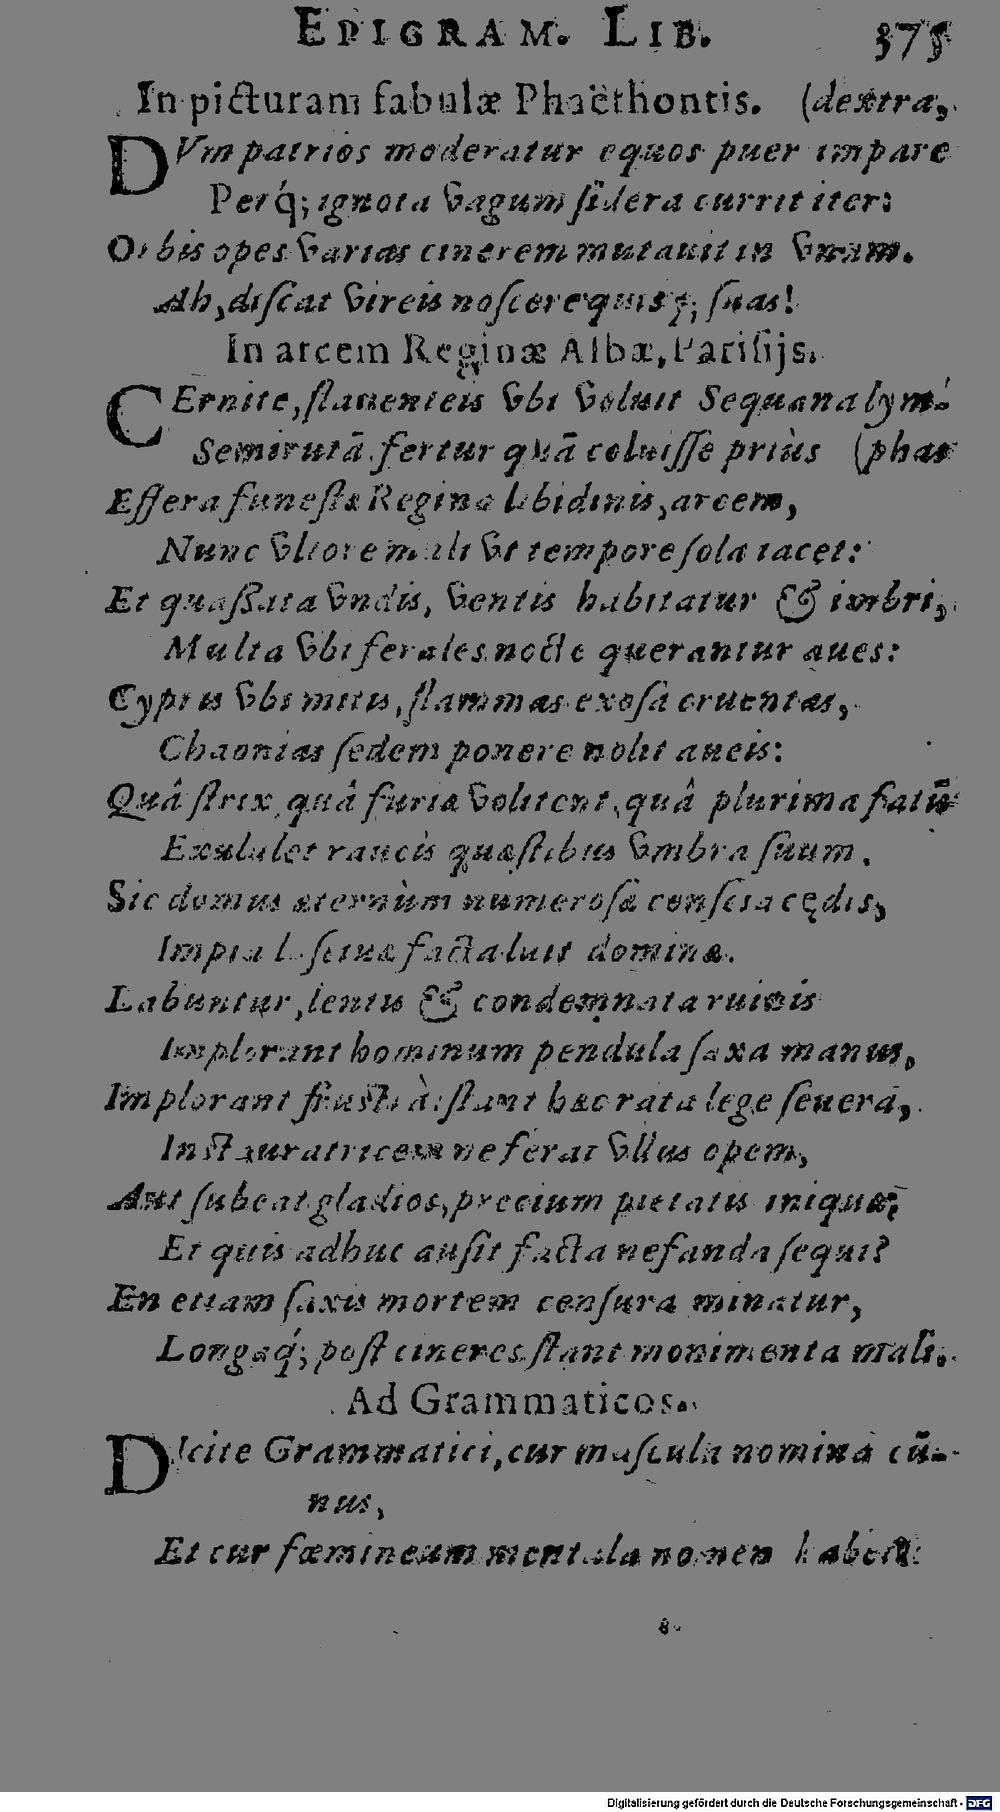 EPIGRAM. LIB. 375
In picturam fabulæ Phaëthontis. (dextra,
DVm patrios moderatur equos puer impare
Perq́; ignota vagum sidera currit iter:
Orbis opes varias cinerem mutauit in vnum.
Ah, discat vireis noscere quisq; suas!
In arcem Reginæ Albæ, Parisijs.
CErnite, flauenteis vbi voluit Sequana lym-
Semirutā fertur quā coluisse priùs (phas
Effera funestæ Regina libidinis, arcem,
Nunc vltore mali vt tempore sola iacet:
Et quaßata vndis, ventis habitatur & imbri,
Multa vbi ferales nocte querantur aues:
Cypris vbi mitis, flammas exosa cruentas,
Chaonias sedem ponere nolit aueis:
Quâ strix, quâ furia volitent, quâ plurima fatū
Exululet raucis quæstibus vmbra suum.
Sic domus æternùm numerosæ conscia cędis,
Impia lasciuæ facta luit dominæ.
Labuntur, lentis & condemnata ruinis
Implorant hominum pendula saxa manus,
Implorant frustrà: stant hæc rata lege seuera,
Instauratricem ne ferat vllus opem,
Aut subeat gladios, precium pietatis iniquæ;
Et quis adhuc ausit facta nefanda sequi?
En etiam saxis mortem censura minatur,
Longaq́; post cineres stant monimenta mali.
Ad Grammaticos.
DIcite Grammatici, cur mascula nomina cū-
nus,
Et cur fœmineum mentula nomen habet?